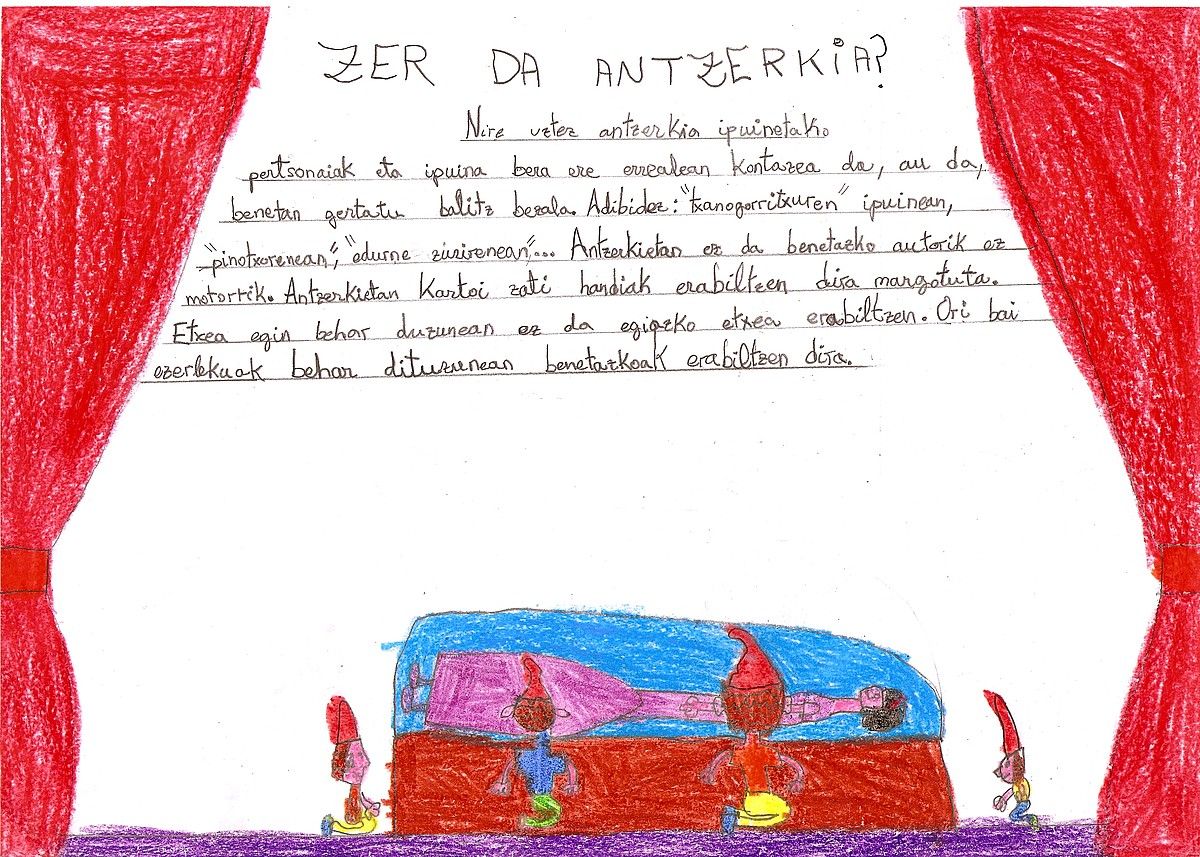 ZER DA ANTZERKiA?
Nire uztez antzerkia ipuinetako
pertsonaiak eta ipuina bera ere errealean kontazea da, au da,
benetan gertatu balitz bezala. Adibidez: "txanogorritxuren" ipuinean,
"pinotxorenean", "edurne zuzirenean"... Antzerkietan ez da benetazko autorik ez
motorrik. Antzerkietan kartoi zati handiak erabiltzen dira margotuta.
Etxea egin behar duzunean ez da egiazko etxea erabiltzen. Ori bai
ezerlekuak behar dituzunean benetazkoak erabiltzen dira.